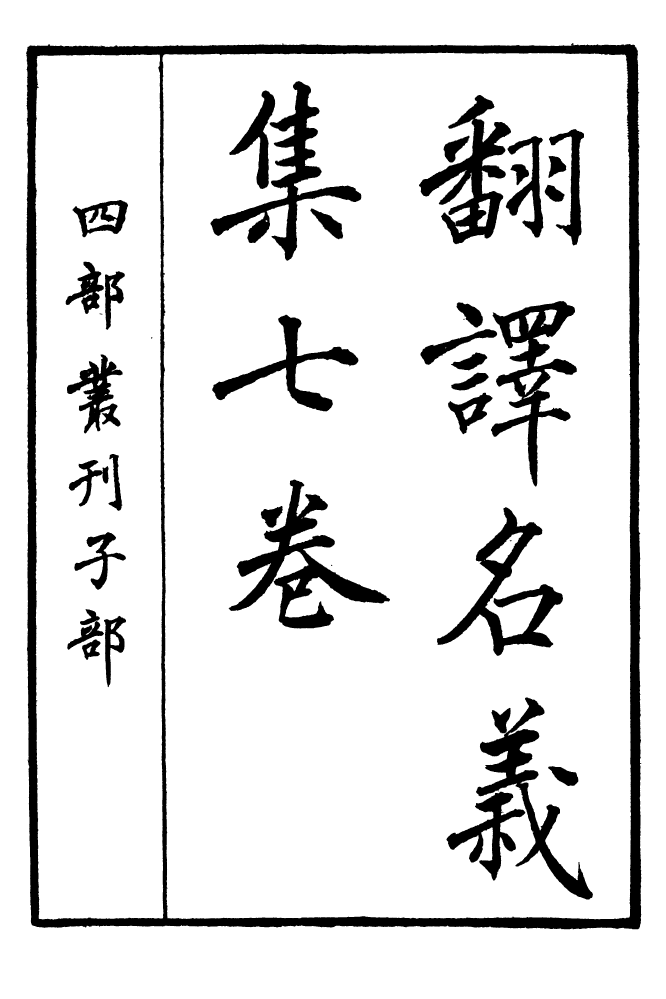 翻譯名義
集七卷
四部叢刊子部